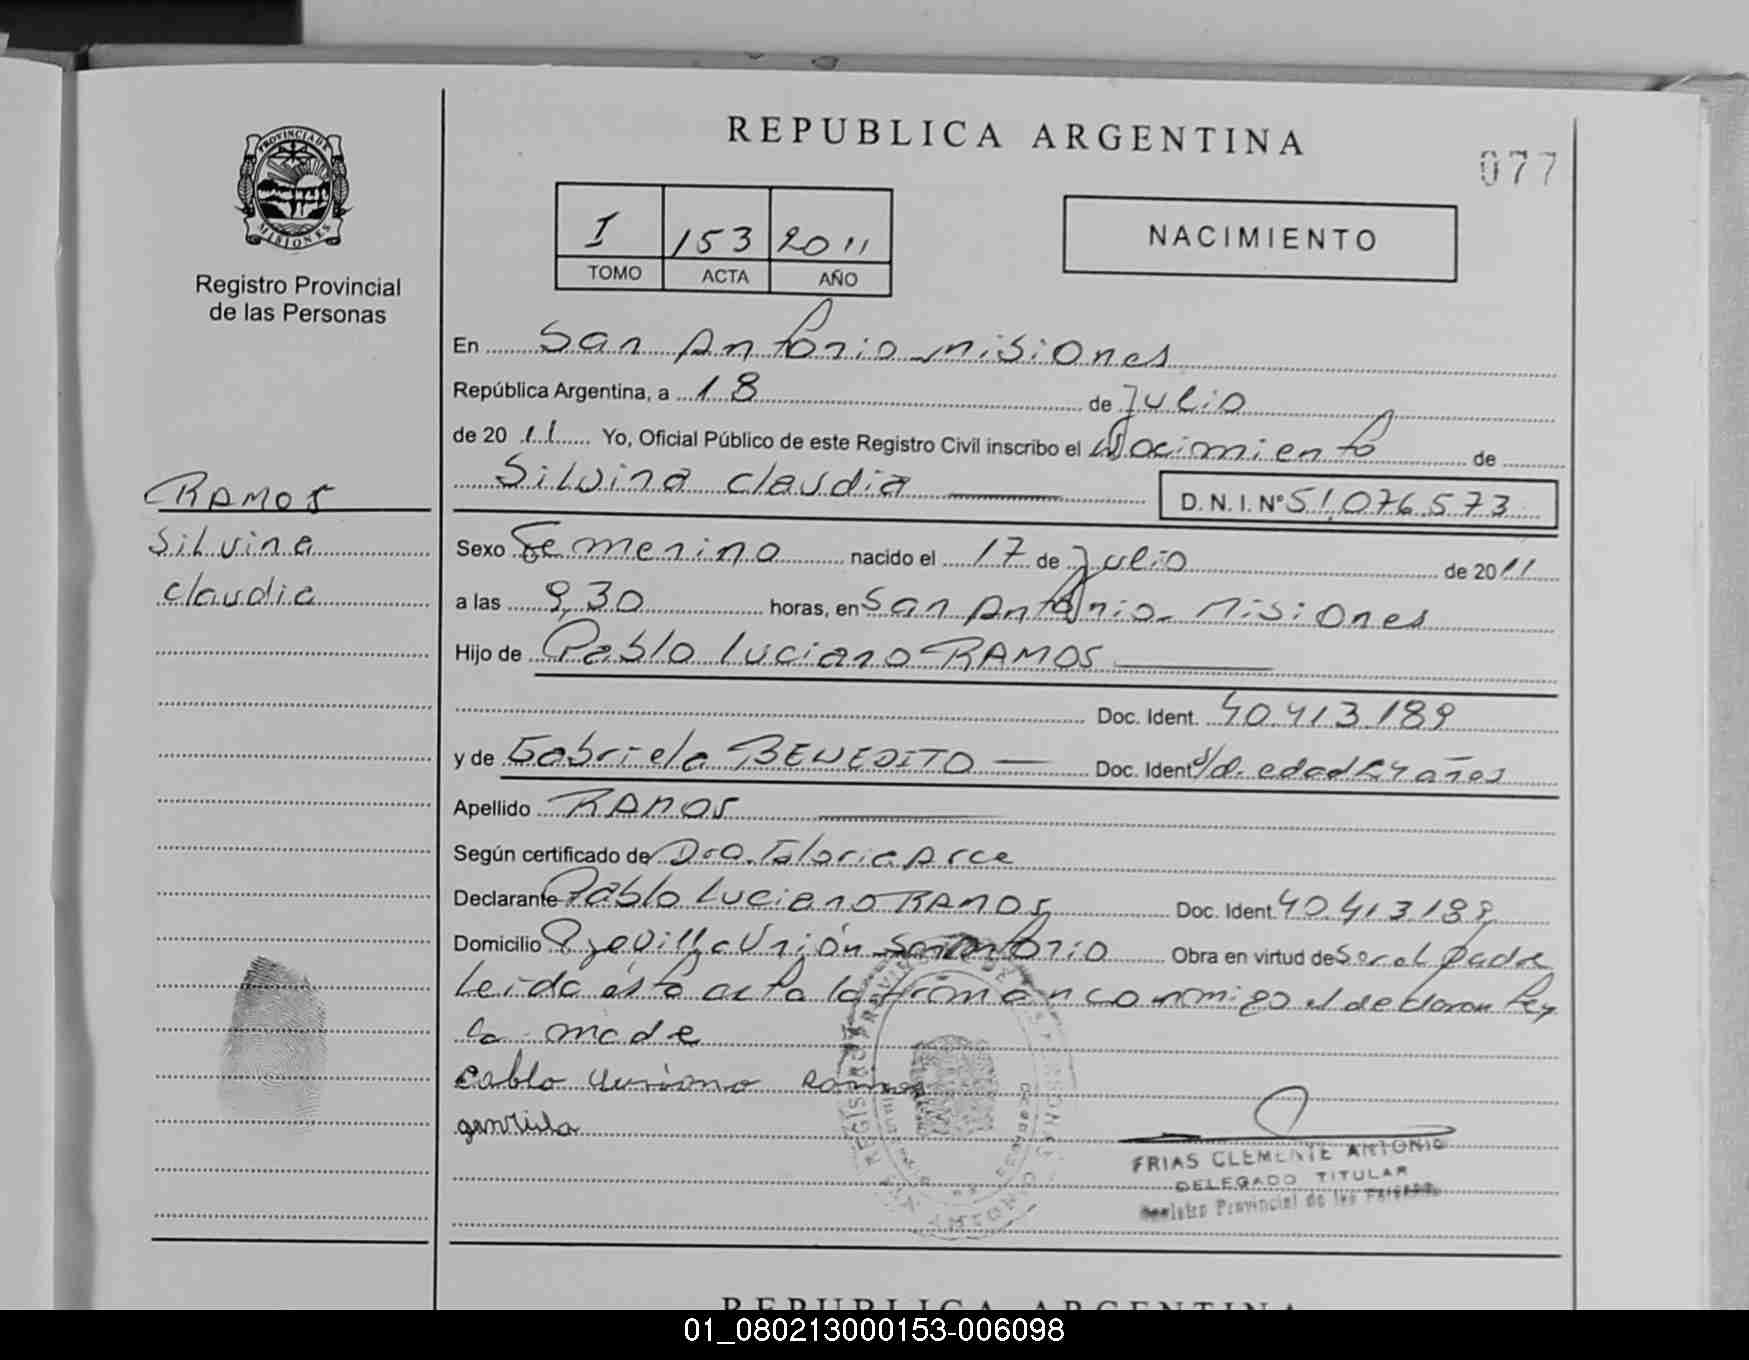 PROVINCIA DE
MISIONES
Registro Provincial
de las Personas
RAMOS
Silvina
Claudia
REPUBLICA ARGENTINA
077
I 153 2011
TOMO ACTA AÑO
NACIMIENTO
En San Antonio Misiones
República Argentina, a 18 de Julio
de 20 11 Yo, Oficial Público de este Registro Civil inscribo el Nacimiento de
Silvina Claudia D.N.I. Nº 51.076.573
Sexo Femenino nacido el 17 de Julio de 20 11
a las 9,30 horas, en San Antonio - Misiones
Hijo de Pablo Luciano RAMOS
Doc. Ident. 40.413.189
y de Gabriela BENEDITO Doc. Ident. s/d. edad años
Apellido RAMOS
Según certificado de Dra. Arce
Declarante Pablo Luciano RAMOS Doc. Ident. 40.413.189
Domicilio Villa Unión San Antonio Obra en virtud de Ser el padre
Leida ésta acta la firman conmigo el declarante y
la madre
Pablo Luciano Ramos
FRIAS CLEMENTE ANTONIO
DELEGADO TITULAR
Registro Provincial de las Personas
REPUBLICA ARGENTINA
01_080213000153-006098